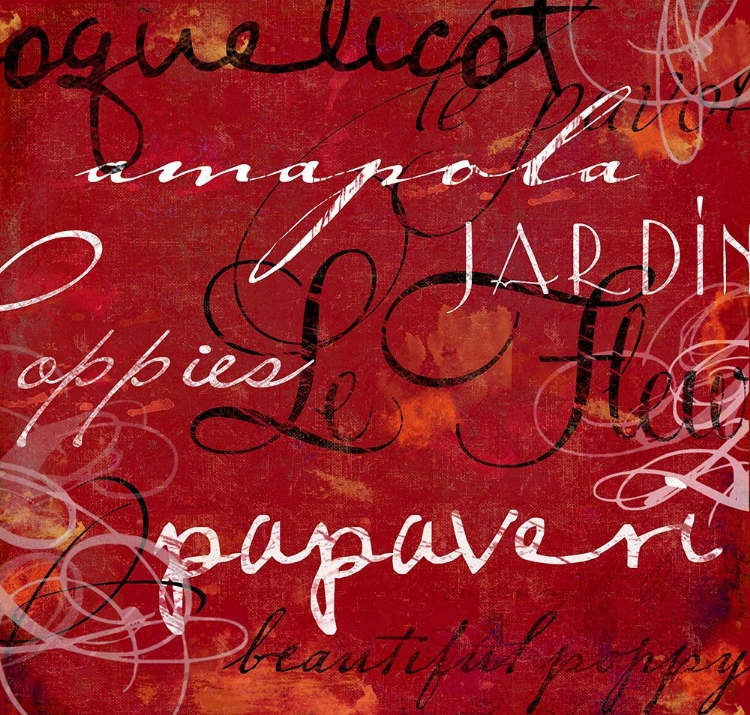 oquelicot
le pavot
amapola
JARDÍN
Poppies
Le Fleur
papaveri
beautiful poppy